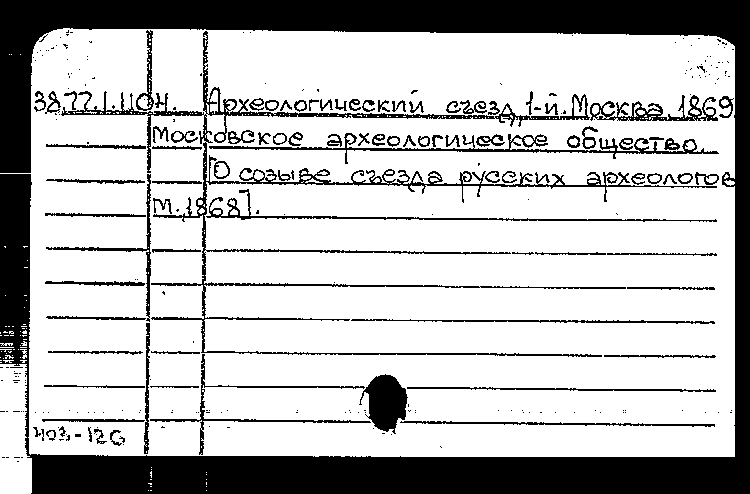 38.77.I.1104. Археологический съезд, 1-й. Москва. 1869
Московское археологическое общество.
[О созыве съезда русских археологов
М., 1868].
403-126